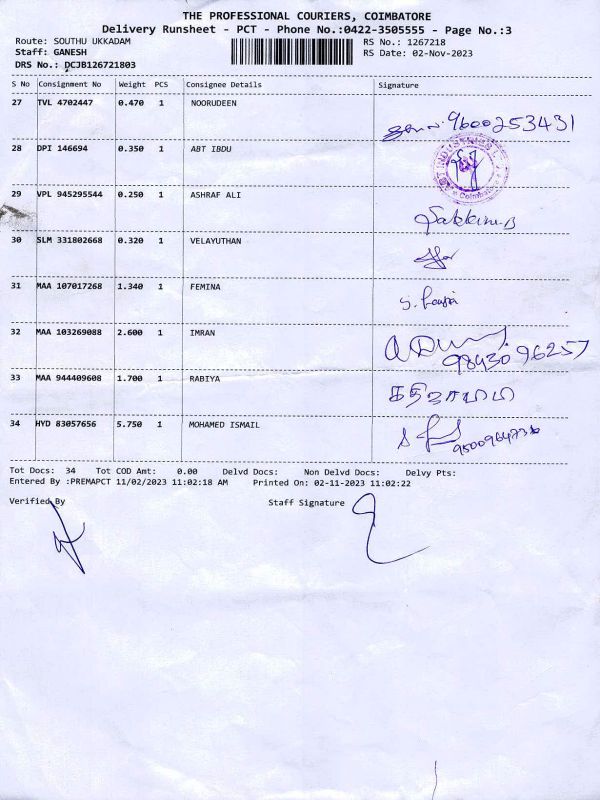 THE PROFESSIONAL COURIERS, COIMBATORE
Delivery Runsheet - PCT - Phone No.:0422-3505555 - Page No.:3
Route: SOUTHU UKKADAM RS No.: 1267218
Staff: GANESH RS Date: 02-Nov-2023
DRS No.: DCJB126721803
S No Consignment No Weight PCS Consignee Details Signature
27 TVL 4702447 0.470 1 NOORUDEEN
9600253431
28 DPI 146694 0.350 1 ABT IBDU
Coimbatore
29 VPL 945295544 0.250 1 ASHRAF ALI
30 SLM 331802668 0.320 1 VELAYUTHAN
31 MAA 107017268 1.340 1 FEMINA
32 MAA 103269088 2.600 1 IMRAN
98430 96257
33 MAA 944409608 1.700 1 RABIYA
34 HYD 83057656 5.750 1 MOHAMED ISMAIL
Tot Docs: 34 Tot COD Amt: 0.00 Delvd Docs: Non Delvd Docs: Delvy Pts:
Entered By :PREMAPCT 11/02/2023 11:02:18 AM Printed On: 02-11-2023 11:02:22
Verified By Staff Signature